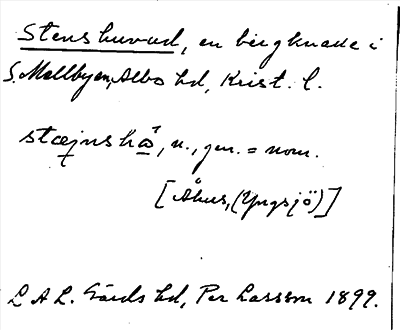 Stenshuvud, en bergknade i
S. Mellbyen, Albo hd, Krist. l.
n., gen. = nom.
[Åhus, (Yngsjö)]
L A L. Gärds hd, Per Larsson 1899.